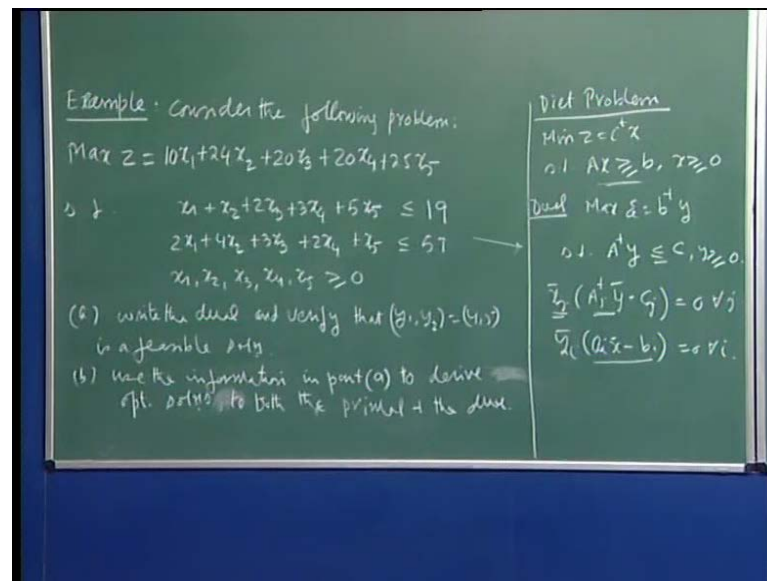 Example. Consider the following problem:
Max Z = 10x₁+24x₂+20x₃+20x₄+25x₅
s.t. x₁+x₂+2x₃+3x₄+5x₅ ≤ 19
2x₁+4x₂+3x₃+2x₄+x₅ ≤ 57
x₁, x₂, x₃, x₄, x₅ ≥ 0
(a) write the dual and verify that (y₁, y₂) = (4, 5)
is a feasible soln.
(b) use the information in part (a) to derive
opt. solns to both the primal + the dual.
Diet Problem
Min Z = cᵗx
s.t. Ax ≥ b, x ≥ 0
Dual Max = bᵗy
s.t. Aᵗy ≤ c, y ≥ 0.
(Aⱼᵗ ȳ - cⱼ) = 0 ∀ j
(aᵢx̄ - bᵢ) = 0 ∀ i.